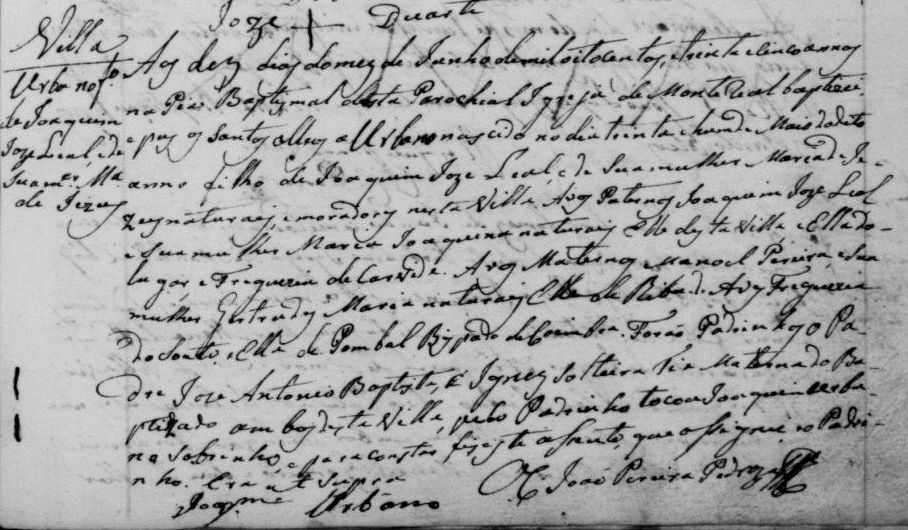 Joze + Duarte
Villa
Urbano fo
de Joaquim
Joze Leal, e de
Sua mer Ma
de Jezus
Aos dez dias do mez de Junho de mil oito centos, e trinta e cinco annos
na Pia Baptysmal desta Parochial Igreja de Monte Real baptizei,
e puz os Santos Oleos a Urbano nascido no dia trinta e hum de Maio do dito
anno filho de Joaquim Joze Leal, e de Sua mulher Maria de Je-
zus naturaes, e moradores nesta Villa, Avos Paternos Joaquim Joze Leal
e Sua mulher Maria Joaquina naturaes Elle desta Villa e Ella do
lugar e Freguezia de Carvide. Avos Maternos Manoel Pereira, e Sua
mulher Gertrudes Maria naturaes Elle de Riba d'Aves Freguezia
do Souto, e Ella de Pombal Bispado de Coimbra. Forão Padrinhos o Pa-
dre Joze Antonio Baptista, e Ignez Solteira Tia Materna do Ba-
ptizado ambos desta Villa, pelo Padrinho tocou Joaquim Urba-
no Sobrinho, e para constar fiz este assento, que assignei, e o Padri-
nho. Era ut supra
O João Pereira Pedroza
Joaqm Urbano